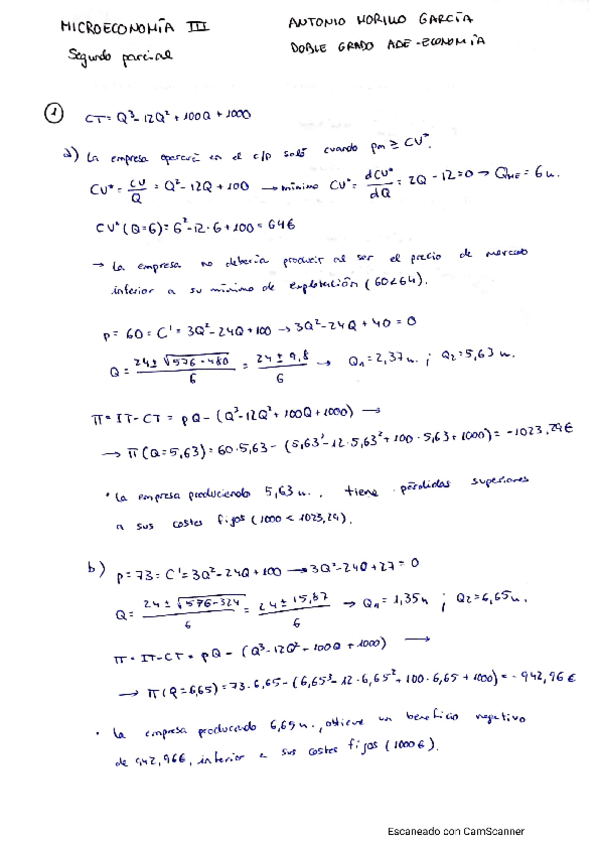 MICROECONOMÍA III
ANTONIO MORILLO GARCÍA
Segundo parcial
DOBLE GRADO ADE-ECONOMÍA
① CT = Q³ - 12Q² + 100Q + 1000
a) La empresa operará en el c/p sólo cuando pm ≥ CV*.
CV* = CV/Q = Q² - 12Q + 100 → mínimo CV* = dCV*/dQ = 2Q - 12 = 0 → QME = 6 u.
CV* (Q=6) = 6² - 12·6 + 100 = 64€
→ La empresa no debería producir al ser el precio de mercado
inferior a su mínimo de explotación (60<64).
p = 60 = C' = 3Q² - 24Q + 100 → 3Q² - 24Q + 40 = 0
Q = 24 ± √576 - 480 / 6 = 24 ± 9,8 / 6 → Q₁ = 2,37 u. ; Q₂ = 5,63 u.
π = IT - CT = pQ - (Q³ - 12Q² + 100Q + 1000) →
→ π (Q = 5,63) = 60·5,63 - (5,63³ - 12·5,63² + 100·5,63 + 1000) = -1023,24€
• La empresa produciendo 5,63 u., tiene pérdidas superiores
a sus costes fijos (1000 < 1023,24).
b) p = 73 = C' = 3Q² - 24Q + 100 → 3Q² - 24Q + 27 = 0
Q = 24 ± √576 - 324 / 6 = 24 ± 15,87 / 6 → Q₁ = 1,35 u ; Q₂ = 6,65 u.
π = IT - CT = pQ - (Q³ - 12Q² - 100Q + 1000) →
→ π (Q = 6,65) = 73·6,65 - (6,65³ - 12·6,65² + 100·6,65 + 1000) = -942,96€
• La empresa produciendo 6,65 u., obtiene un beneficio negativo
de 942,96€, inferior a sus costes fijos (1000€).
Escaneado con CamScanner